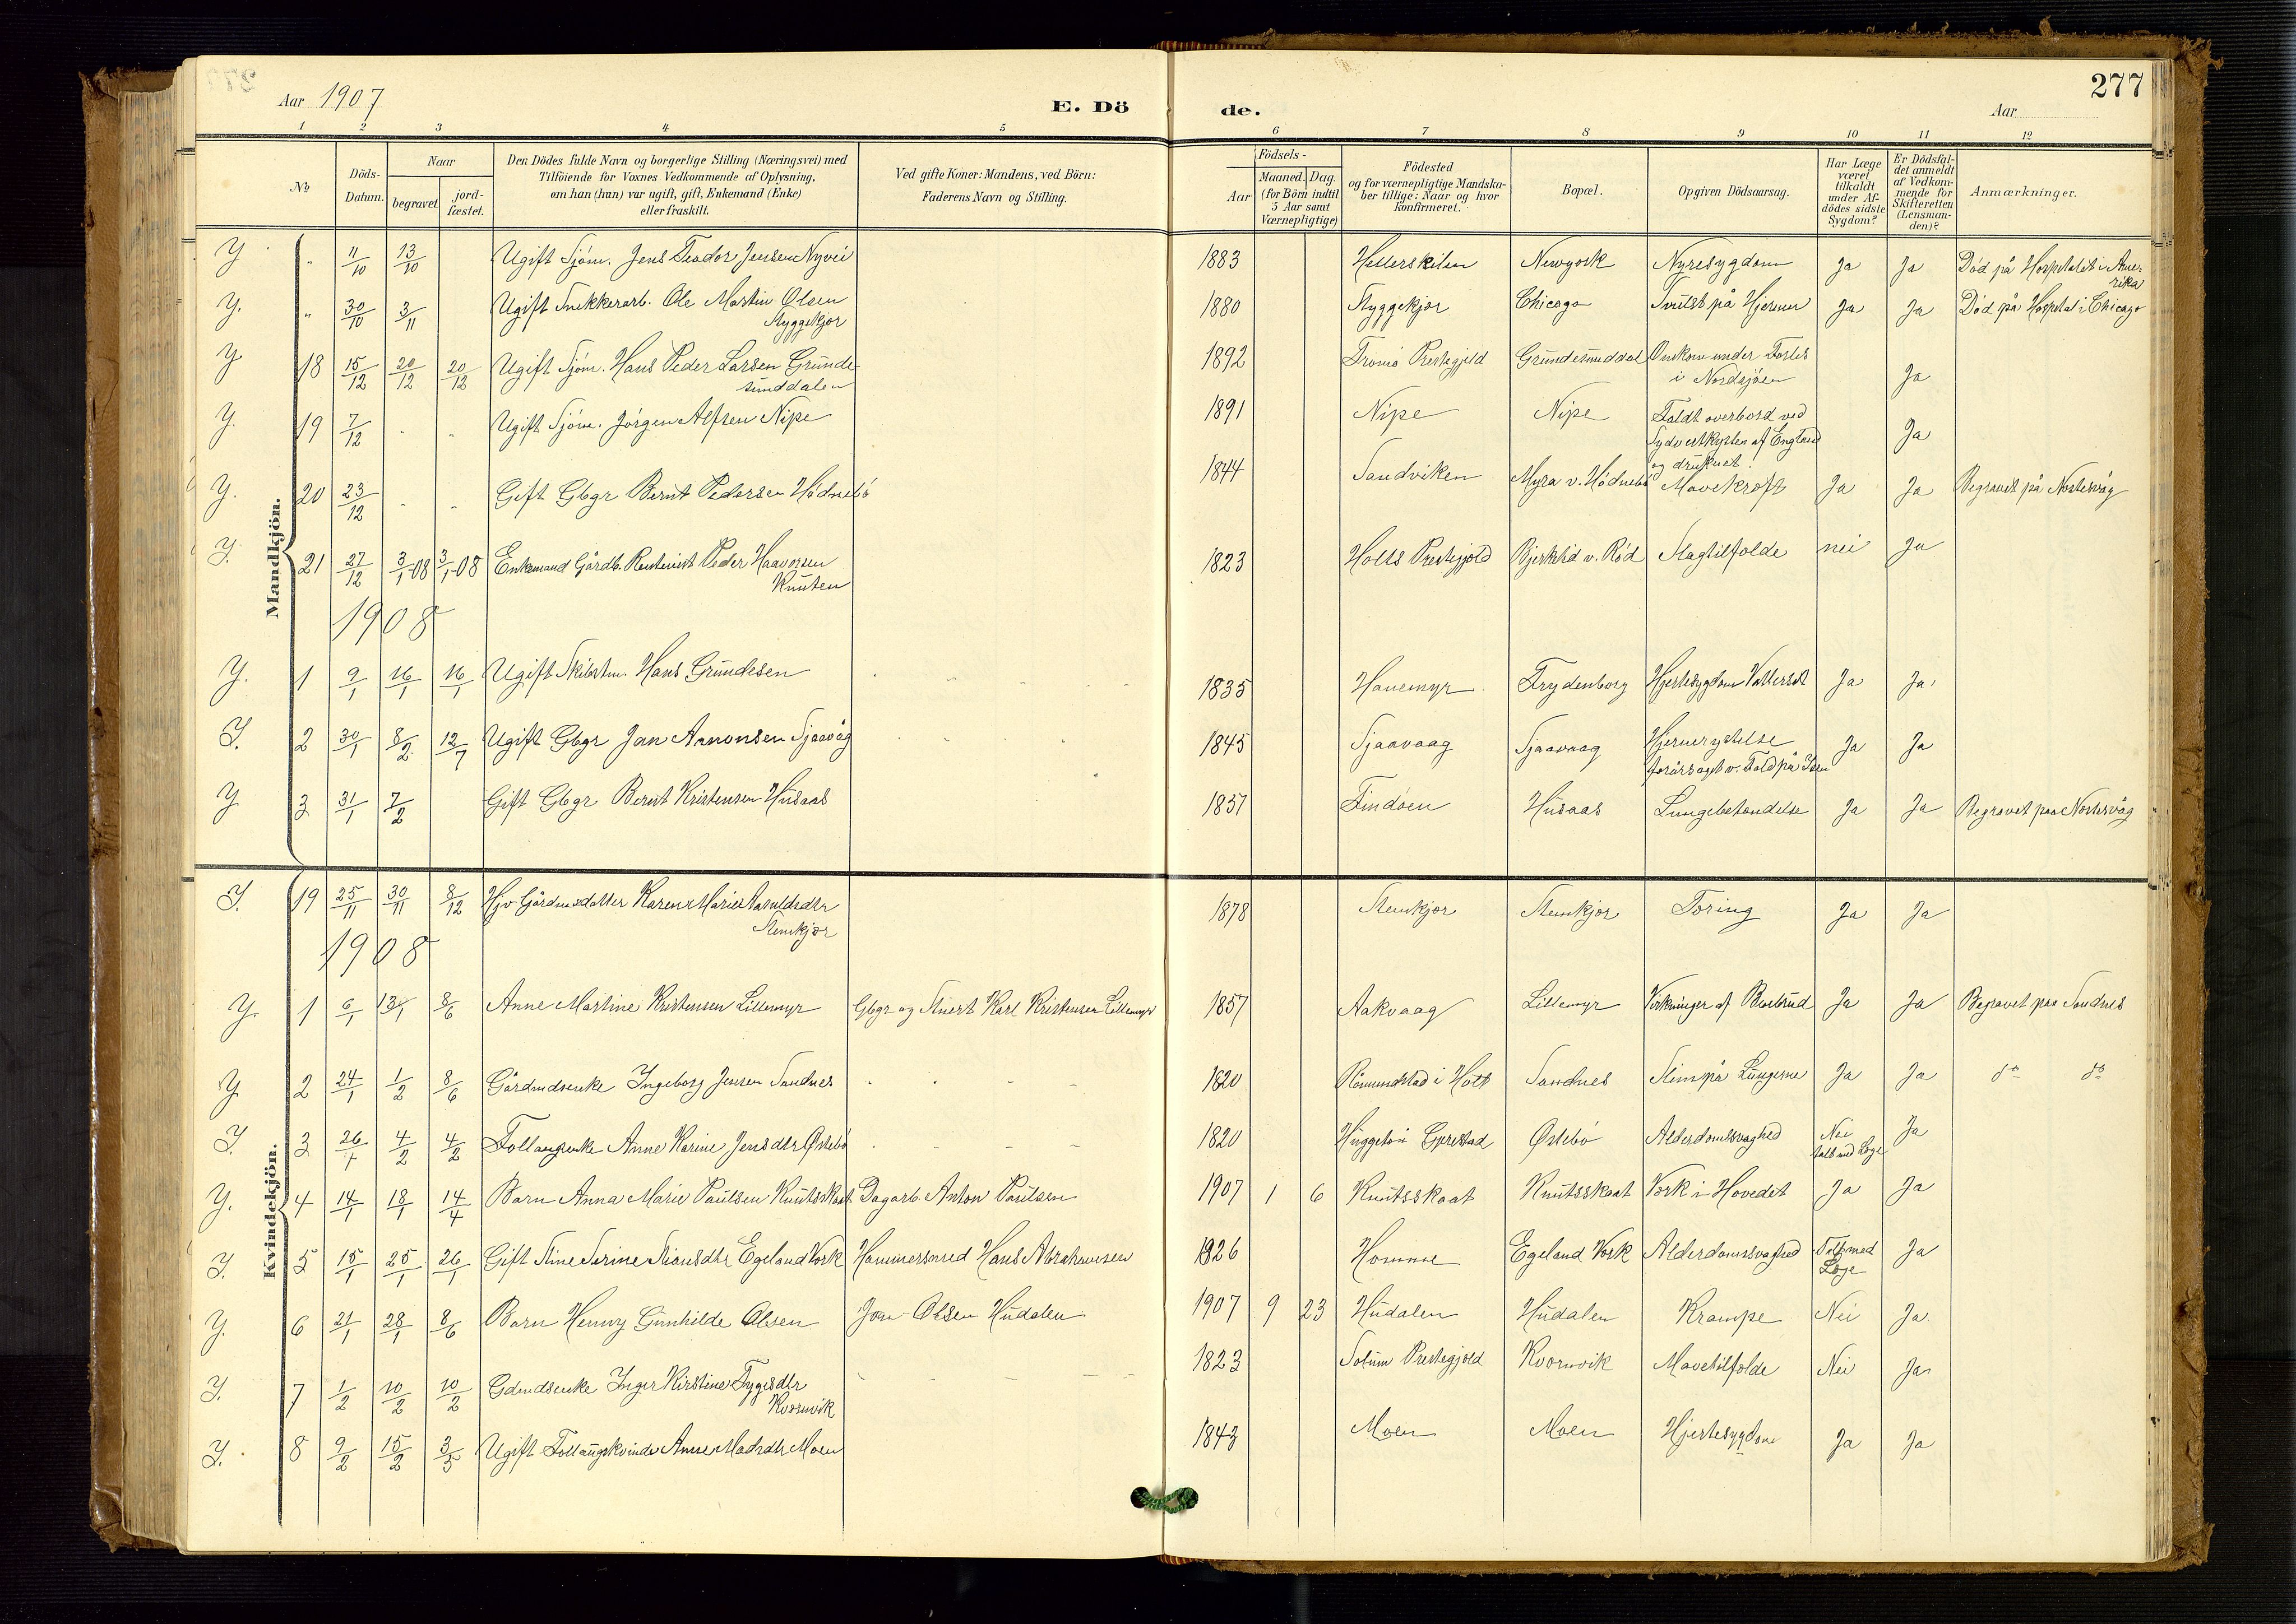 277
Aar 1907
E. Dö
de.
Aar
1 2 3 4 5 6 7 8 9 10 11 12
No
Döds-Datum.
Naar
begravet
jord-fæstet.
Den Dödes fulde Navn og borgerlige Stilling (Næringsvei) med
Tilföiende for Voxnes Vedkommende af Oplysning,
om han (hun) var ugift, gift, Enkemand (Enke)
eller fraskilt.
Ved gifte Koner: Mandens, ved Börn:
Faderens Navn og Stilling.
Födsels-
Aar
Maaned. Dag
(for Börn indtil
5 Aar samt
Værnepligtige)
Födested
og for værnepligtige Mandska-
ber tillige: Naar og hvor
konfirmeret.
Bopæl.
Opgiven Dödsaarsag.
Har Læge
været
tilkaldt
under Af-
dödes sidste
Sygdom?
Er Dödsfal-
det anmeldt
af Vedkom-
mende for
Skifteretten
(Lensman-
den)?
Anmærkninger.
Mandkjön.
Y. " 11/10 13/10 Ugift Sjøm. Jens Teodor Jensen Nyvei 1883 Hellerskilen Newyork Nyresygdom Ja Ja Död på Hospitalet i Ame-
rika
Y. " 30/10 3/11 Ugift Snekkerarb. Ole Martin Olsen 1880 Styggekjør Chicago Svulst på Hjernen Ja Ja Död på Hospital i Chicago
Styggekjør
Y 18 15/12 20/12 20/12 Ugift Sjøm. Hans Peder Larsen Grunde- 1892 Tromö Prestegjeld Grundesunddal Omkom under Forlis
sunddalen i Nordsjöen Ja
Y. 19 7/12 Ugift Sjøm. Jörgen Alfsen Nipe 1891 Nipe Nipe Faldt overbord ved
Sydvestkysten af England Ja
og druknet.
Y. 20 23/12 Gift Gbgr Bernt Pedersen Hödnebö 1844 Sandviken Myra v. Hödnebö Mavekræft Ja Ja Begravet på Nostesväg
Y. 21 27/12 3/1-08 3/1-08 Enkemand Gårdb. Rentenist Peder Haavorsen 1823 Holts Prestegjeld Bjerkelid v. Röd Slagtilfælde nei Ja
Knuten
1908
Y. 1 9/1 16/1 16/1 Ugift Skibstm. Hans Grundesen 1835 Hanemyr Frydenborg Hjertesygdom Vattersot Ja Ja
Y. 2 30/1 8/2 12/7 Ugift Gbgr Jan Aanonsen Sjaavåg 1845 Sjaavaag Sjaavaag Hjernerystelse Ja Ja
forårsaget v. Fald på Isen
Y 3 31/1 7/2 Gift Gbgr Bernt Kristensen Husaas Findöen Husaas Lungebetændelse Ja Ja Begravet paa Nostesväg
Kvindekjön.
Y. 19 25/11 30/11 8/12 Hjv Gårdmdsdatter Karen Marie 1878 Stenkjær Stenkjær Tæring Ja Ja
Stenkjær
1908
Y. 1 6/1 13/1 8/6 Anne Martine Kristensen Lillemyr Gbgr og Stuert Karl Kristensen Lillemyr 1857 Aakvaag Lillemyr Virkninger af Benbrud Ja Ja Begravet paa Sandnes
Y. 2 24/1 1/2 8/6 Gårdmdsenke Ingeborg Jensen Sandnes 1820 Römundstad i Holt Sandnes Slim på Lungerne Ja Ja do do
Y. 3 26/1 4/2 4/2 Follaugsenke Anne Karine Jensdtr Østebö 1820 Gjerestad Østebö Alderdomssvaghed Nei Ja
talt med Læge
Y. 4 14/1 18/1 14/4 Barn Anna Marie Paulsen Knutsskaat Dagarb. Anton Paulsen 1907 1 6 Knutsskaat Knutsskaat Værk i Hovedet Ja Ja
Y. 5 15/1 25/1 26/1 Gift Stine Serine Stiansdtr Egeland Værk Hammersmed Hans Abrahamsen 1826 Homme Egeland Værk Alderdomssvaghed Talt med Ja
Læge
Y. 6 21/1 28/1 8/6 Barn Henny Gunhilde Olsen Jon Olsen Hudalen 1907 9 23 Hudalen Hudalen Krampe Nei Ja
Y. 7 1/2 10/2 10/2 Gdmdsenke Inger Kirstine Tygesdtr 1823 Solum Prestegjeld Kvernvik Mavetilfælde Nei Ja
Kvernvik
Y. 8 9/2 15/2 3/5 Ugift Follaugskvinde Anne Madsdtr Moen 1843 Moen Moen Hjertesygdom Ja Ja